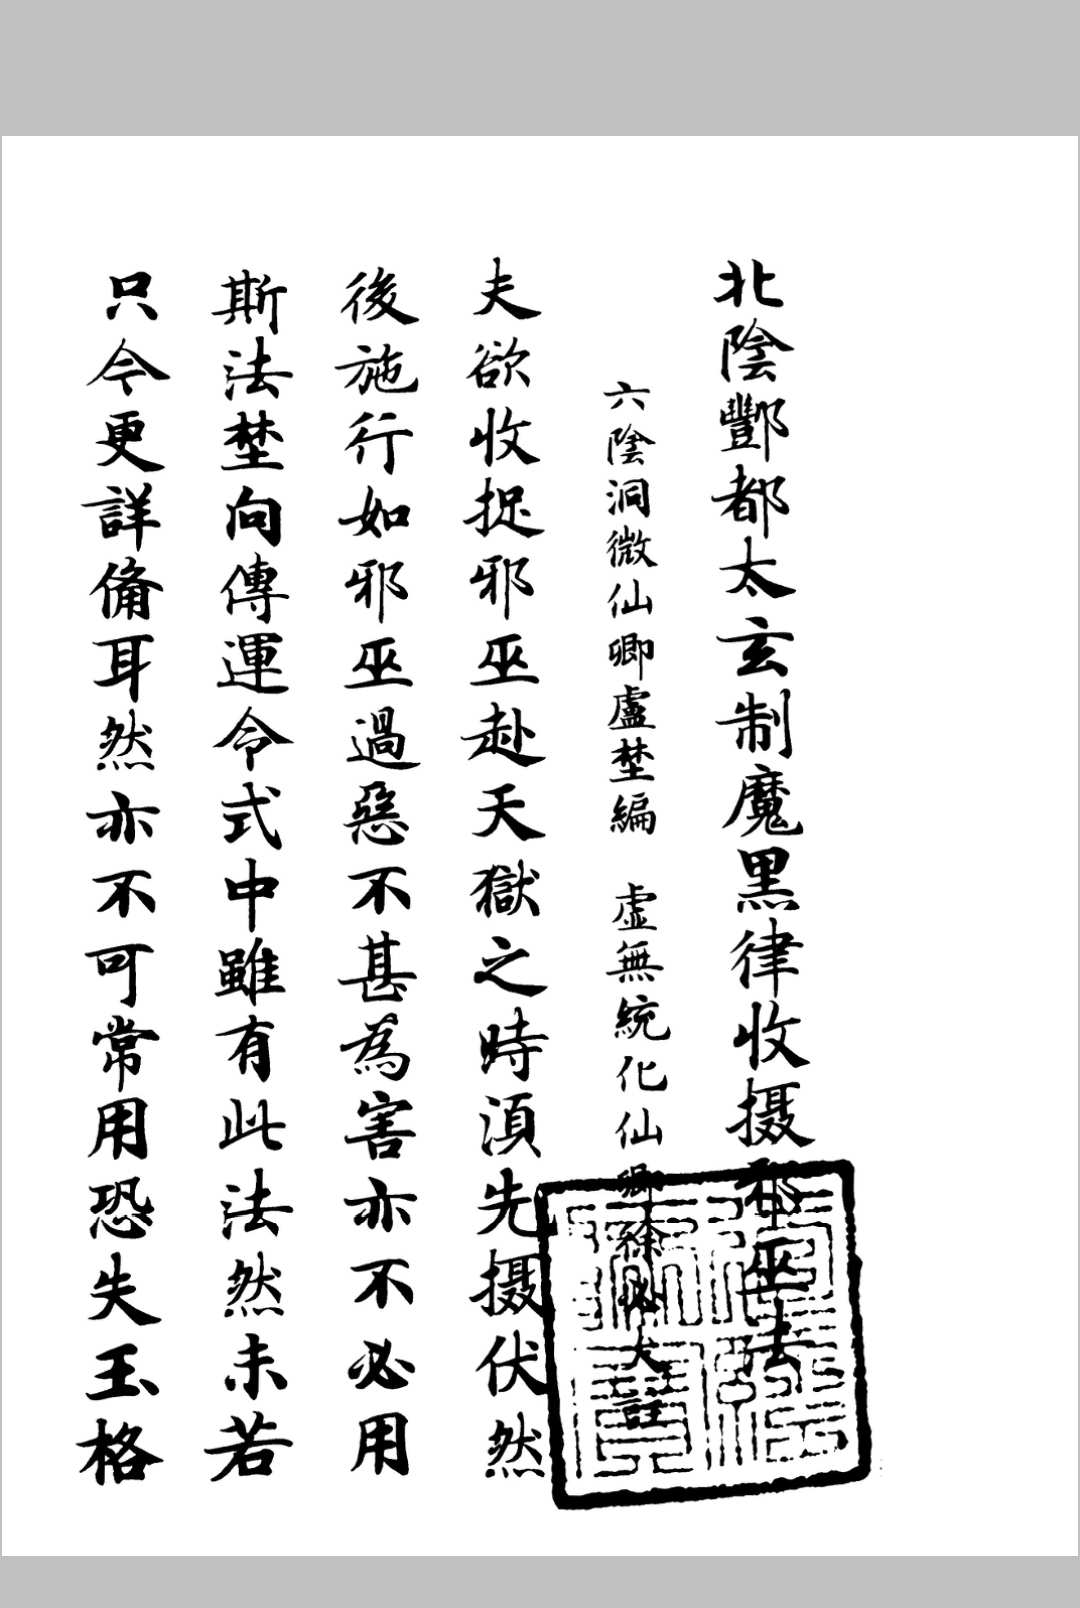 北陰酆都太玄制魔黑律收摄邪巫法
六陰洞微仙卿盧埜編　虛無統化仙卿徐必大註
夫欲收捉邪巫赴天獄之時湏先摄伏然
後施行如邪巫過惡不甚為害亦不必用
斯法埜向傳運令式中雖有此法然未若
只今更詳俻耳然亦不可常用恐失玉格